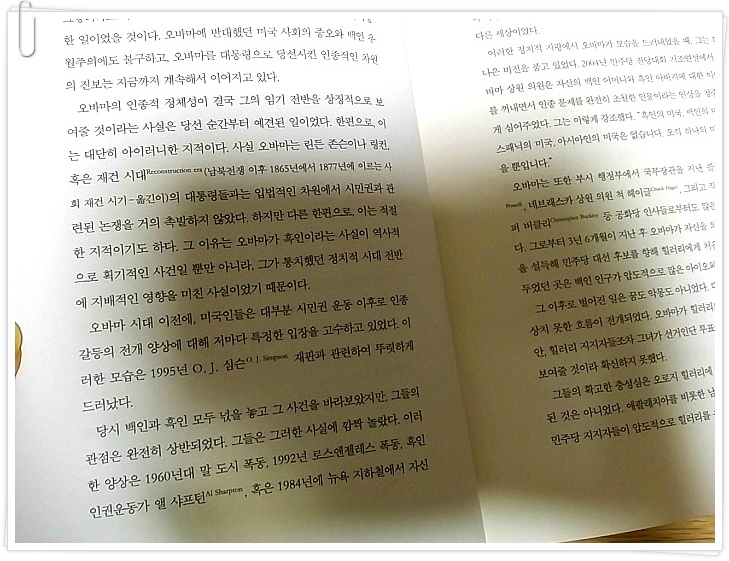 한 일이었음 것이다. 오바마에 반대했던 미국 사회의 증오와 백인 우
월주의에도 불구하고, 오바마를 대통령으로 당선시킨 인종적인 차원
의 진보는 지금까지 계속해서 이어지고 있다.
오바마의 인종적 정체성이 결국 그의 임기 전반을 상징적으로 보
여줄 것이라는 사실은 당선 순간부터 예견된 일이었다. 한편으로, 이
는 대단히 아이러니한 지적이다. 사실 오바마는 린든 존슨이나 링컨,
혹은 재건 시대Reconstruction era(남북전쟁 이후 1865년에서 1877년에 이르는 사
회 재건 시기 - 옮긴이)의 대통령들과는 입법적인 차원에서 시민권과 관
련된 논쟁을 거의 촉발하지 않았다. 하지만 다른 한편으로, 이는 적절
한 지적이기도 하다. 그 이유는 오바마가 흑인이라는 사실이 역사적
으로 획기적인 사건일 뿐만 아니라, 그가 통치했던 정치적 시대 전반
에 지배적인 영향을 미친 사실이었기 때문이다.
오바마 시대 이전에, 미국인들은 대부분 시민권 운동 이후로 인종
갈등의 전개 양상에 대해 저마다 특정한 입장을 고수하고 있었다. 이
러한 모습은 1995년 O. J. 심슨O. J. Simpson 재판과 관련하여 뚜렷하게
드러났다.
당시 백인과 흑인 모두 넋을 놓고 그 사건을 바라보았지만, 그들의
관점은 완전히 상반되었다. 그들은 그러한 사실에 깜짝 놀랐다. 이러
한 양상은 1960년대 말 도시 폭동, 1992년 로스앤젤레스 폭동, 흑인
인권운동가 앨 샤프턴Al Sharpton, 혹은 1984년에 뉴욕 지하철에서 자신
다른 세상이었다.
이러한 정치적 지평에서 오바마가 모습을 드러내었을 때, 그는
나은 비전을 품고 있었다. 2004년 민주당 전당대회 기조연설에서
바마 상원 의원은 자신의 백인 어머니와 흑인 아버지에 대한 이
를 꺼내면서 인종 문제를 완전히 초월한 인물이라는 인상을
게 심어주었다. 그는 이렇게 강조했다. "흑인의 미국, 백인의
스패닉의 미국, 아시아인의 미국은 없습니다. 오직 하나의
을 뿐입니다."
오바마는 또한 부시 행정부에서 국무장관을 지낸
Powell, 네브래스카 상원 의원 척 헤이글Chuck Hagel, 그리고
퍼 버클리Christopher Buckley 등 공화당 인사들로부터도 많은
다. 그로부터 3년 6개월이 지난 후 오바마가 자신을
을 설득해 민주당 대선 후보를 향해 힐러리에게 처음
두었던 곳은 백인 인구가 압도적으로 많은 아이오와
그 이후로 벌어진 일은 꿈도 악몽도 아니었다.
상치 못한 흐름이 전개되었다. 오바마가 힐러리
안, 힐러리 지지자들조차 그녀가 선거인단 투표
보여줄 것이라 확신하지 못했다.
그들의 확고한 충성심은 오로지 힐러리에
된 것은 아니었다. 애팔래치아를 비롯한 남
민주당 지지자들이 압도적으로 힐러리를